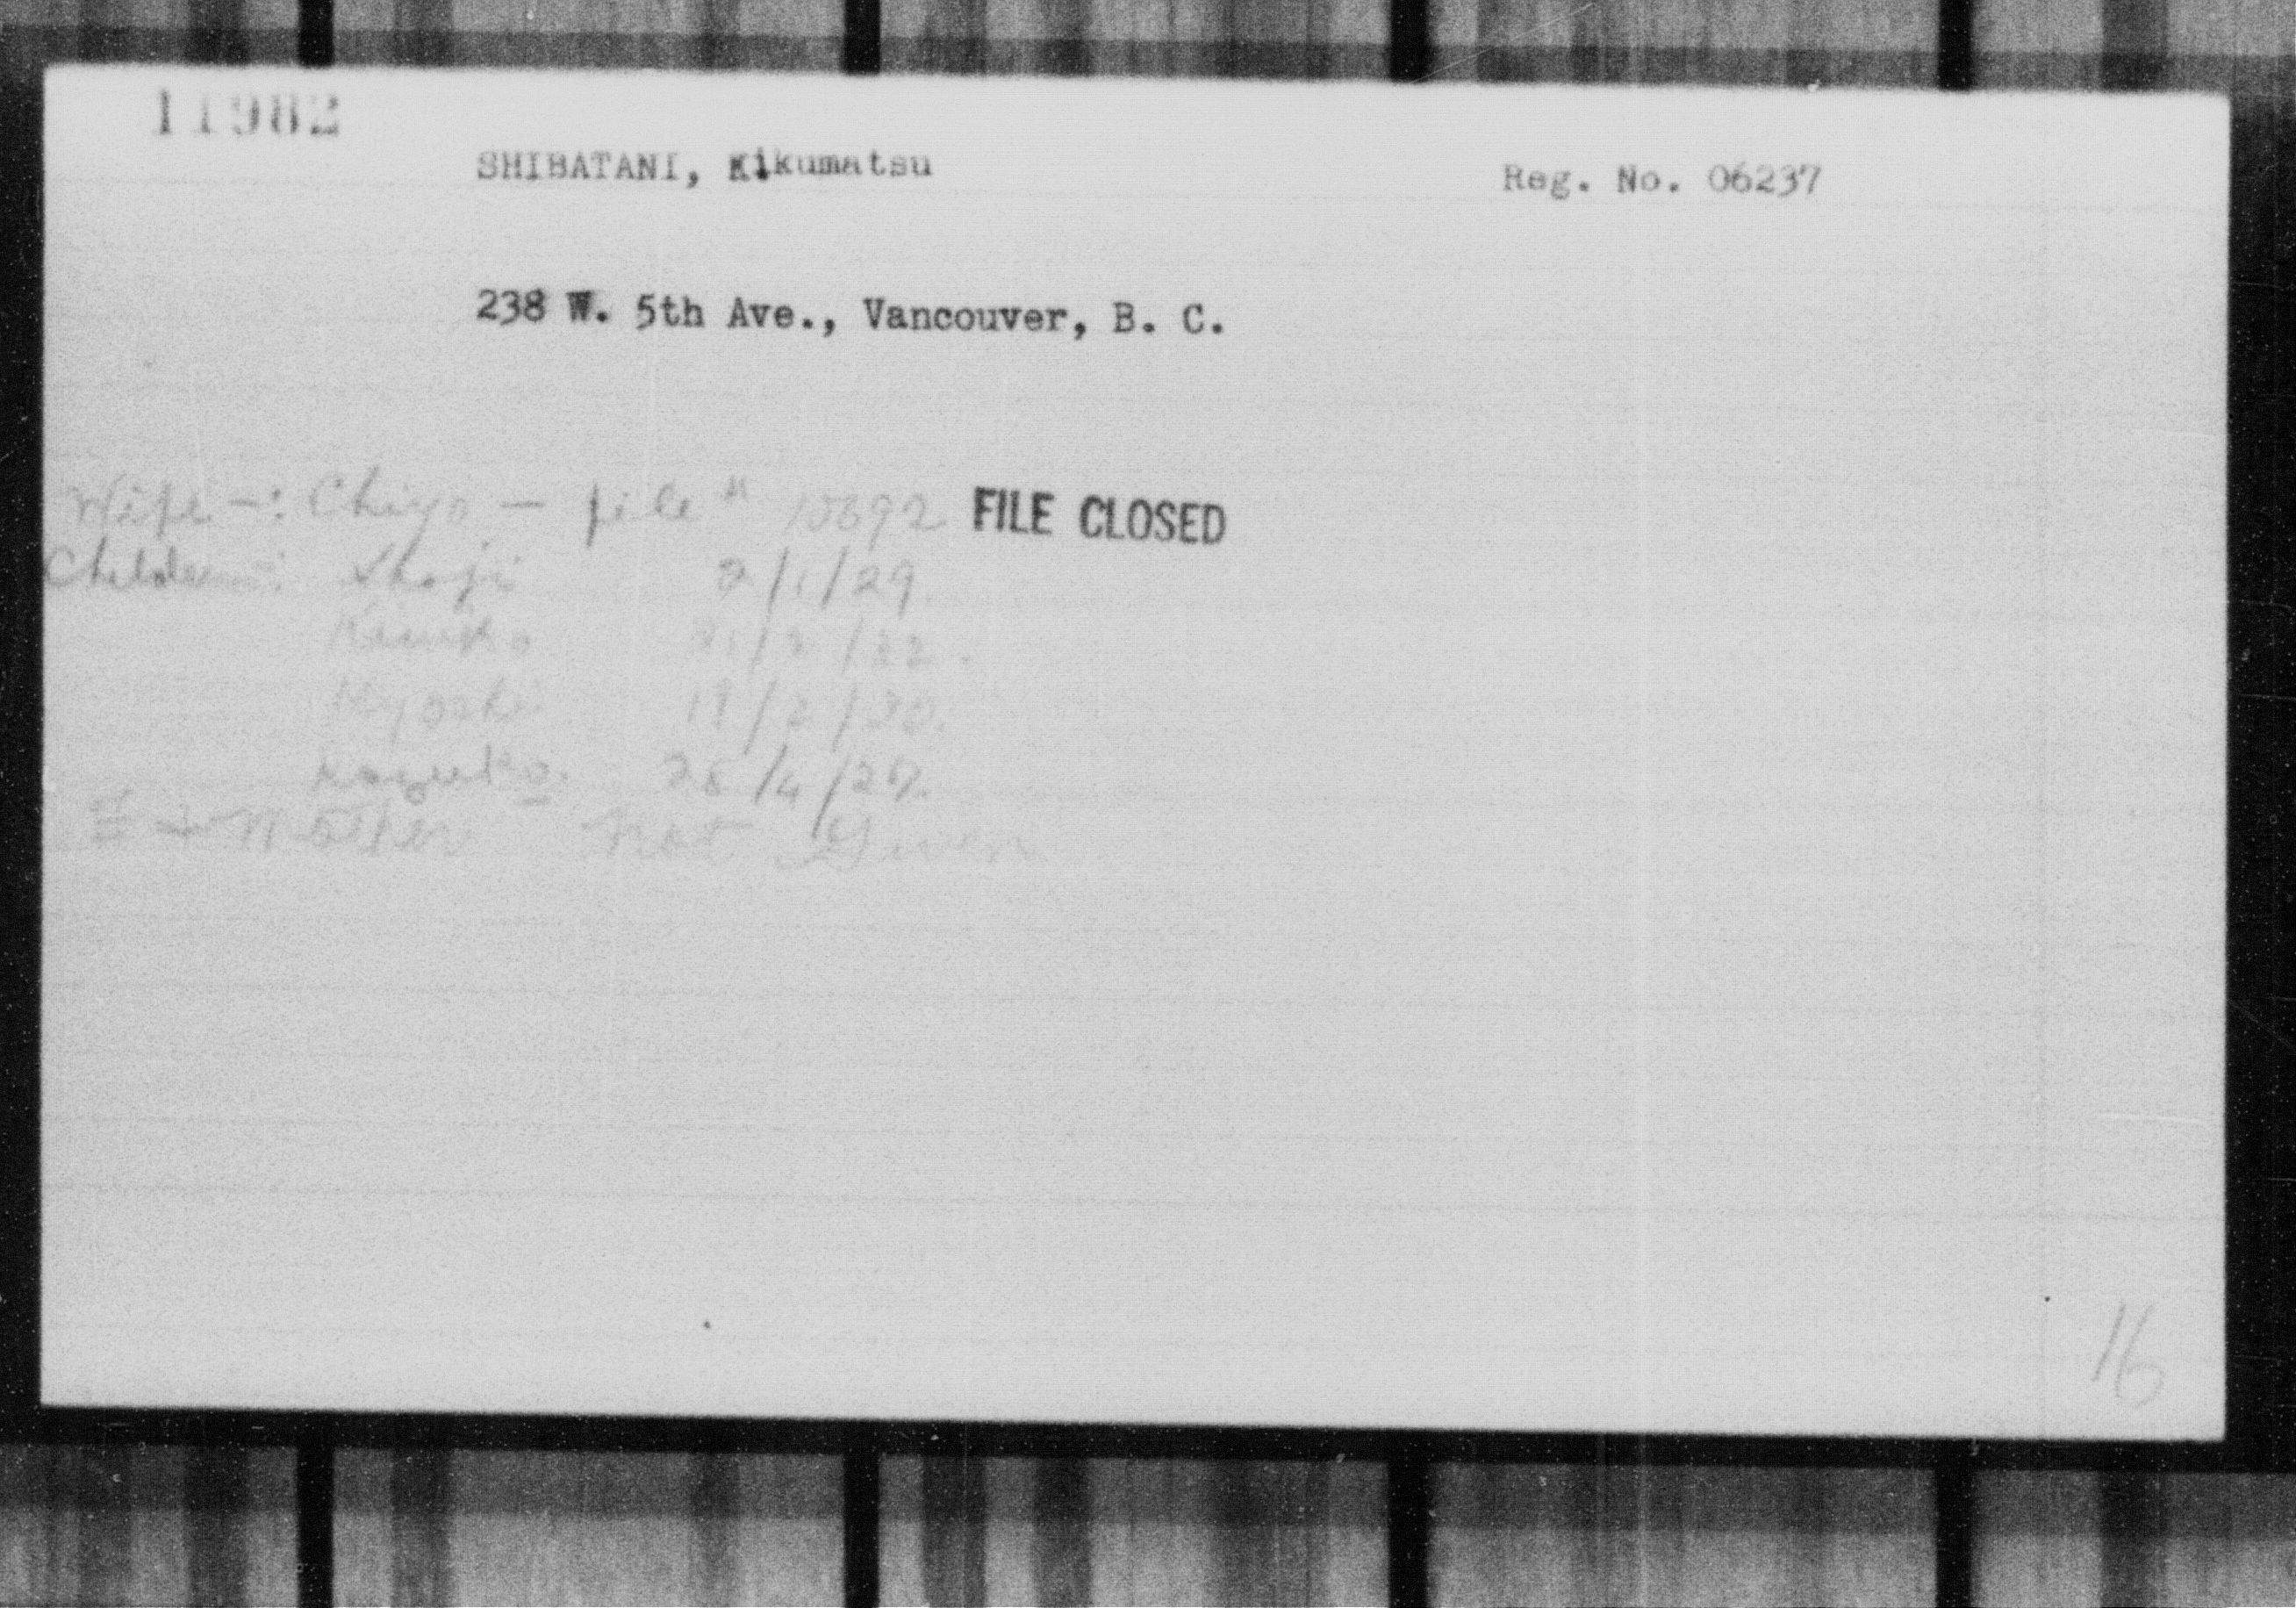 11982
SHIBATANI, Kikumatsu
Reg. No. 06237
238 W. 5th Ave., Vancouver, B. C.
Wife -: Chiyo - file # 10692 FILE CLOSED
Children: Shoji 2/1/29.
Kimiko
Kazuko. 28/4/27.
Mother Not Given
16